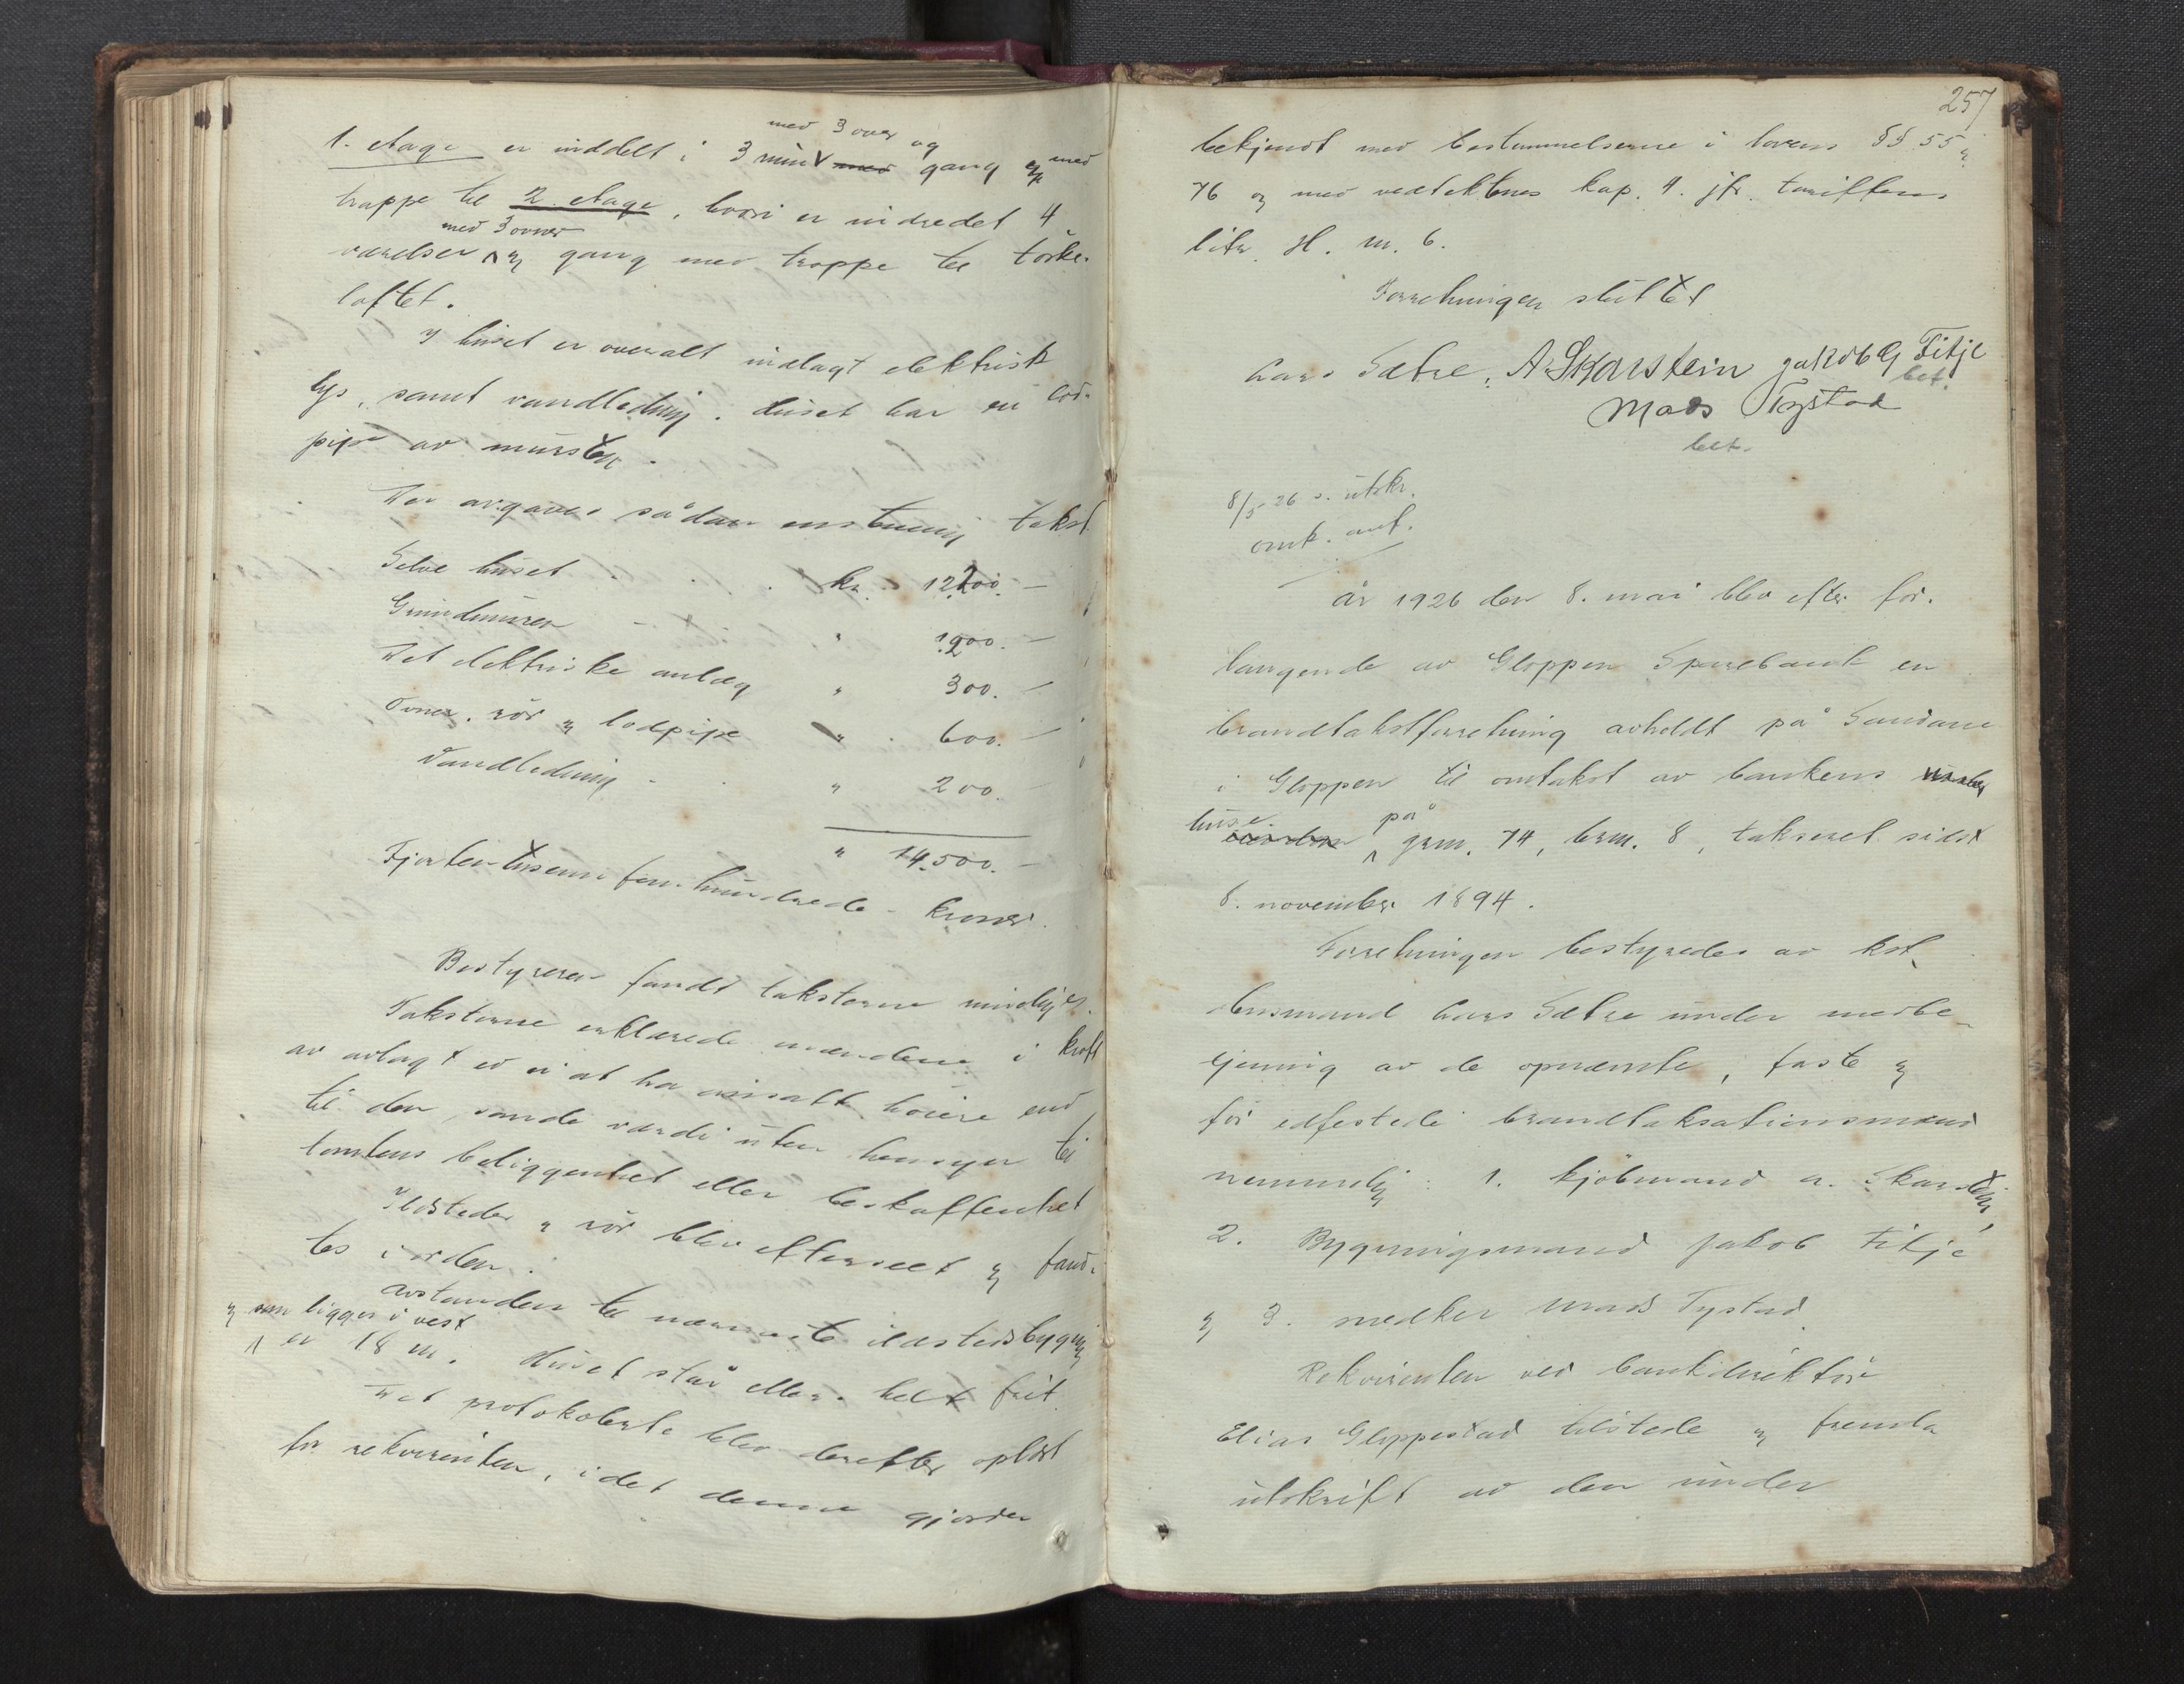 med 3 ovner og
1. etage er inddelt i 3 rum med gang og med
trappe til 2. etage, hvori er indredet 4
med 3 ovner
værelser og gang med trappe til törke-
loftet.
I huset er overalt indlagt elektrisk
lys, samt vandledning. Huset har en lod-
pipe av mursten.
Der avgaves sådan enstemmig takst
Selve huset kr. 12200.-
Grundmuren " 1200.-
Det elektriske anlæg " 300.-
Ovner, rör og lodpipe " 600.-
Vandledning - " 200.-
" 14.500.-
Fjorten tusen fem hundrede - kroner.
Bestyreren fandt taksterne rimelige.
Taksterne erklærede mændene i kraft
av avlagt ed ei at ha ansatt höiere end
til den sande værdi uten hensyn til
tomtens beliggenhet eller beskaffenhet
Ildsteder og rör blev efterseet og fand-
tes i orden.
Avstanden til nærmeste ildstedsbygning
og som ligger i vest
er 18 m. Huset står ellers helt frit.
Det protokolerte blev derefter oplæst
for rekvirenten, idet denne gjordes
257
bekjendt med bestemmelserne i lovens §§ 55 og
76 og med vedtekternes kap. 4. jfr. tariffens
litr. H. m. 6.
Forretningen sluttet
Lars Sætre, A Skarstein Jakob G Fitje
bet.
Mads Tystad
bet.
8/5 26 s. utskr.
omk. ant.
År 1926 den 8. mai blev efter for-
langende av Gloppen Sparebank en
brandtakstforretning avholdt på Sandane
i Gloppen til omtakst av bankens
huse på grm. 74, brm. 8, takseret sidst
8. november 1894.
Forretningen bestyredes av kst.
lensmand Lars Sætre under medbe-
tjening av de opnævnte, faste og
för edfestede brandtaksationsmænd
nemmelig: 1. kjöbmand A. Skarstein,
2. Bygningsmand Jakob Fitje
og 3. snedker Mads Tystad.
Rekvirenten ved bankdirektör
Elias Gloppestad tilstede og fremla
utskrift av den under